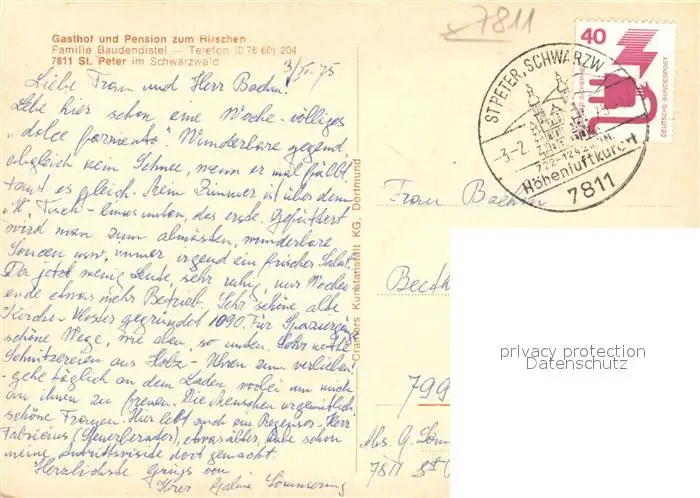 Gasthof und Pension zum Hirschen
Familie Baudendistel — Telefon (0 76 60) 204
7811 St. Peter im Schwarzwald
7811
3/II-75
Liebe Frau und Herr Baehm!
Lebe hier schon eine Woche völliges
"dolce farniente". Wunderbare Gegend
obgleich kein Schnee, wenn er mal fällt
taut es gleich. Mein Zimmer ist über dem
"H". Tisch - links unten, das erste. Gefüttert
wird man zum almästen, wunderbare
Soucen usw, immer irgend ein frischer Salat.
Da jetzt wenig Leute sehr ruhig, nur Wochen
ende etwas mehr Betrieb. Sehr schöne alte
Kirche - Kloster gegründet 1090. Für Spaziergänge
schöne Wege, wie oben, so unten. Sehr nette
Schnitzereien aus Holz - Uhren zum verlieben!
gehe täglich an dem Laden, vorbei um mich
an ihnen zu freuen. Die Menschen urgemütlich,
schöne Frauen. Hier lebt auch ein Herr
Fabricius (Steuerberater), etwas älter, habe schon
meine Antrittsvisite dort gemacht.
Herzlichste Grüsse von
Ihrer Galina Sömmering
Cramers Kunstanstalt KG, Dortmund
40
DEUTSCHE BUNDESPOST
ST. PETER, SCHWARZW.
-3.-2. 75
722-1242 m ü. M.
Höhenluftkurort
7811
Frau Baehm
Beeth
799
Abs. G. Söm
7811 St.
privacy protection
Datenschutz